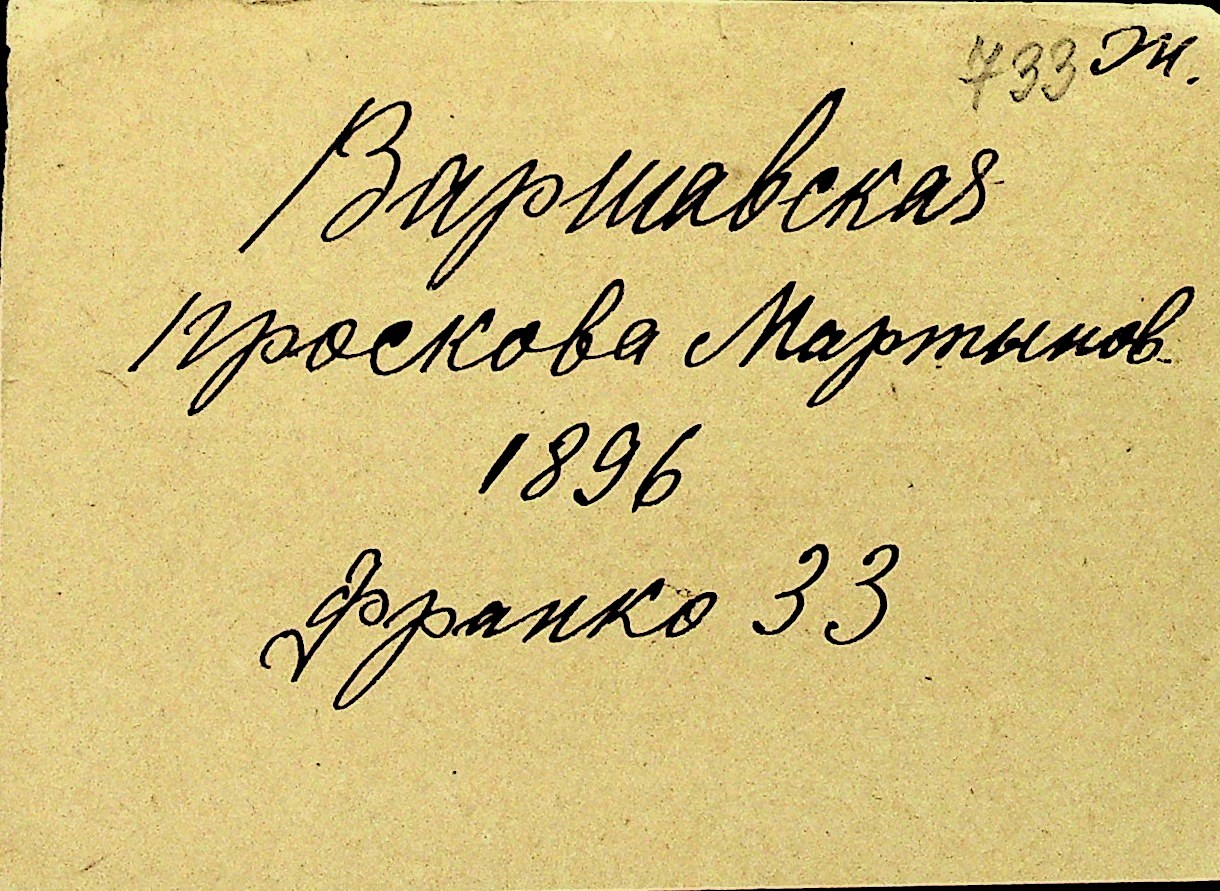 733 Ж.
Варшавская
Проскова Мартынов
1896
Франко 33